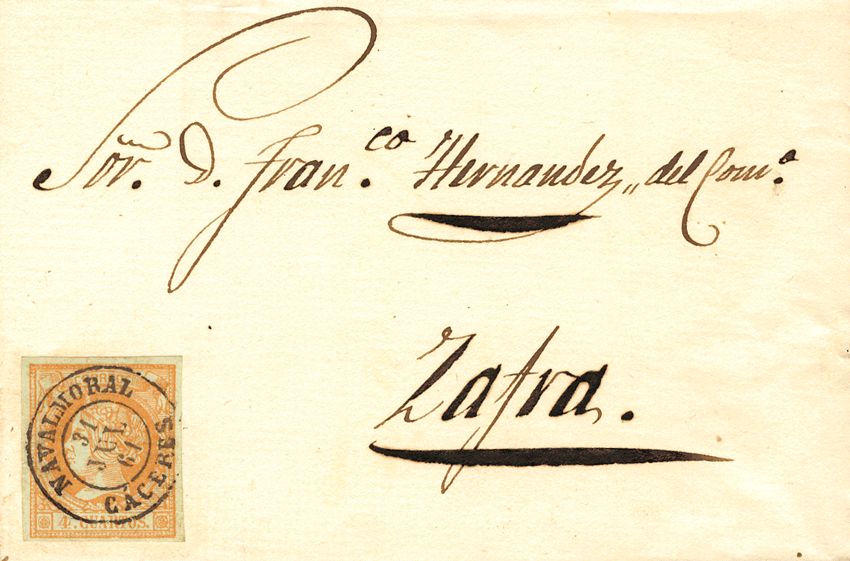 Sor. D. Fran.co Hernandez,, del Com.o
Zafra.
NAVALMORAL
31
JUL
61
CÁCERES
4 CUARTOS.